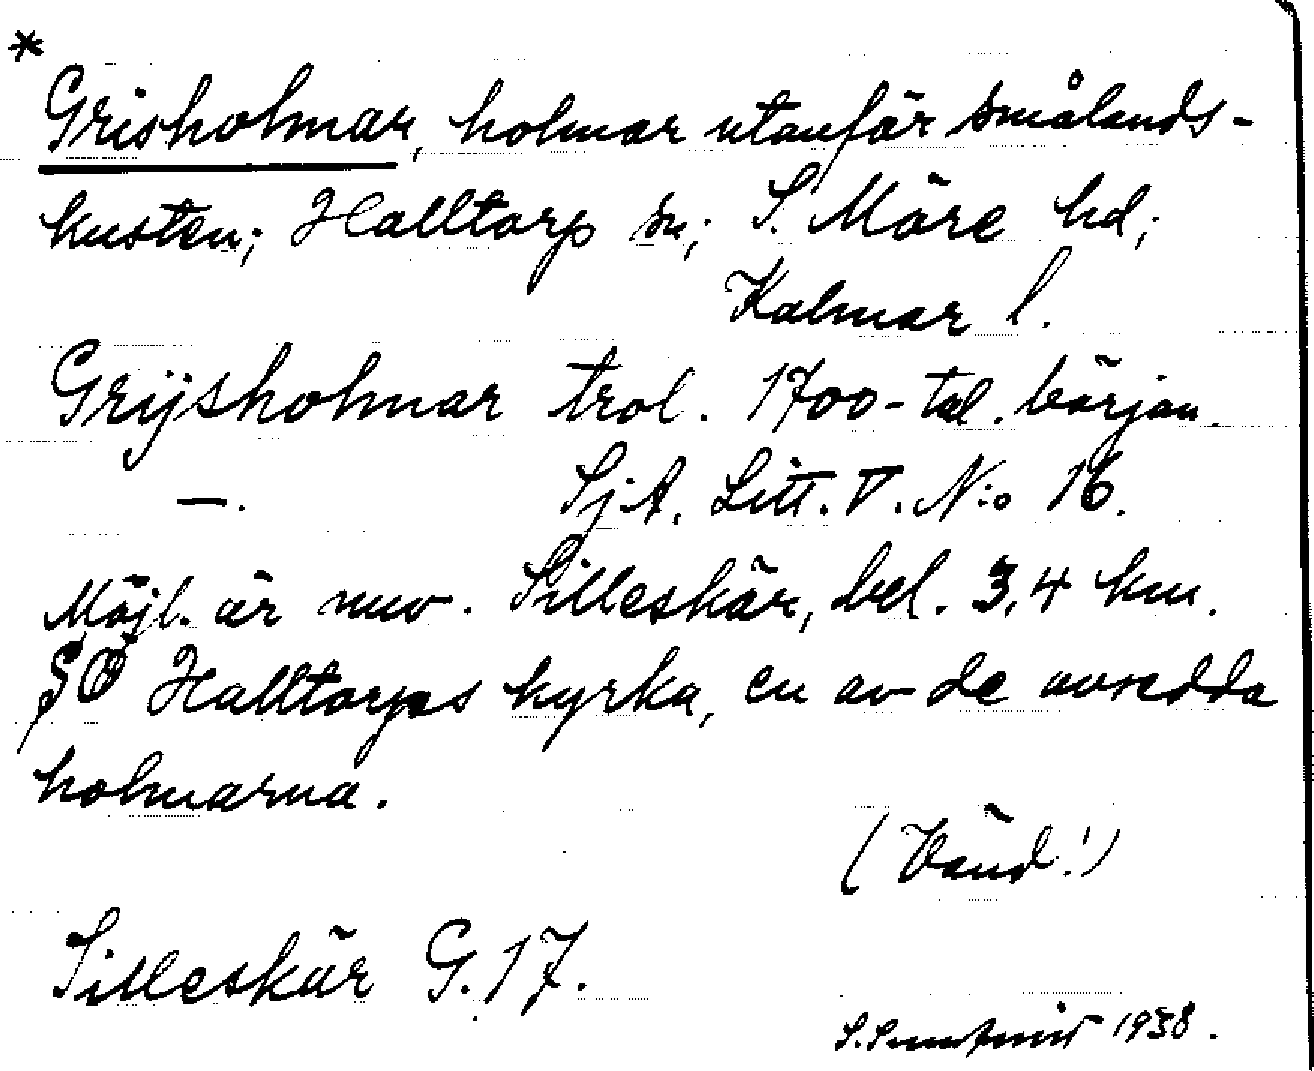 *
Grisholmar, holmar utanför Smålands-
kusten; Halltorp sn; S. Möre hd;
Kalmar l.
Grijsholmar trol. 1700-tal. början.
—. Sj.A. Litt. V. N:o 16.
Möjl. är nuv. Silleskär, bel. 3,4 km.
SO Halltorps kyrka, en av de avsedda
holmarna.
(Vänd!)
Silleskär G.17.
S. 1938.